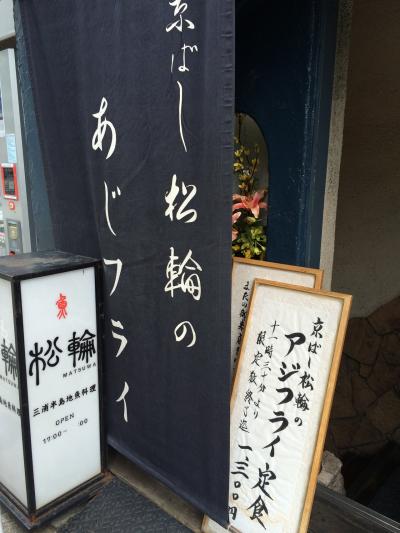 京ばし松輪の
あじフライ
京ばし松輪の
アジフライ定食
十一時三十分より
限定数終了迄
一、三〇〇円
魚
松輪
MATSUWA
三浦半島地魚料理
OPEN
17:00〜 :00